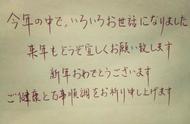 今年の中で、いろいろお世話になりました
来年もどうぞ宜しくお願い致します
新年おめでとうございます
ご健康と万事順調をお祈り申し上げます